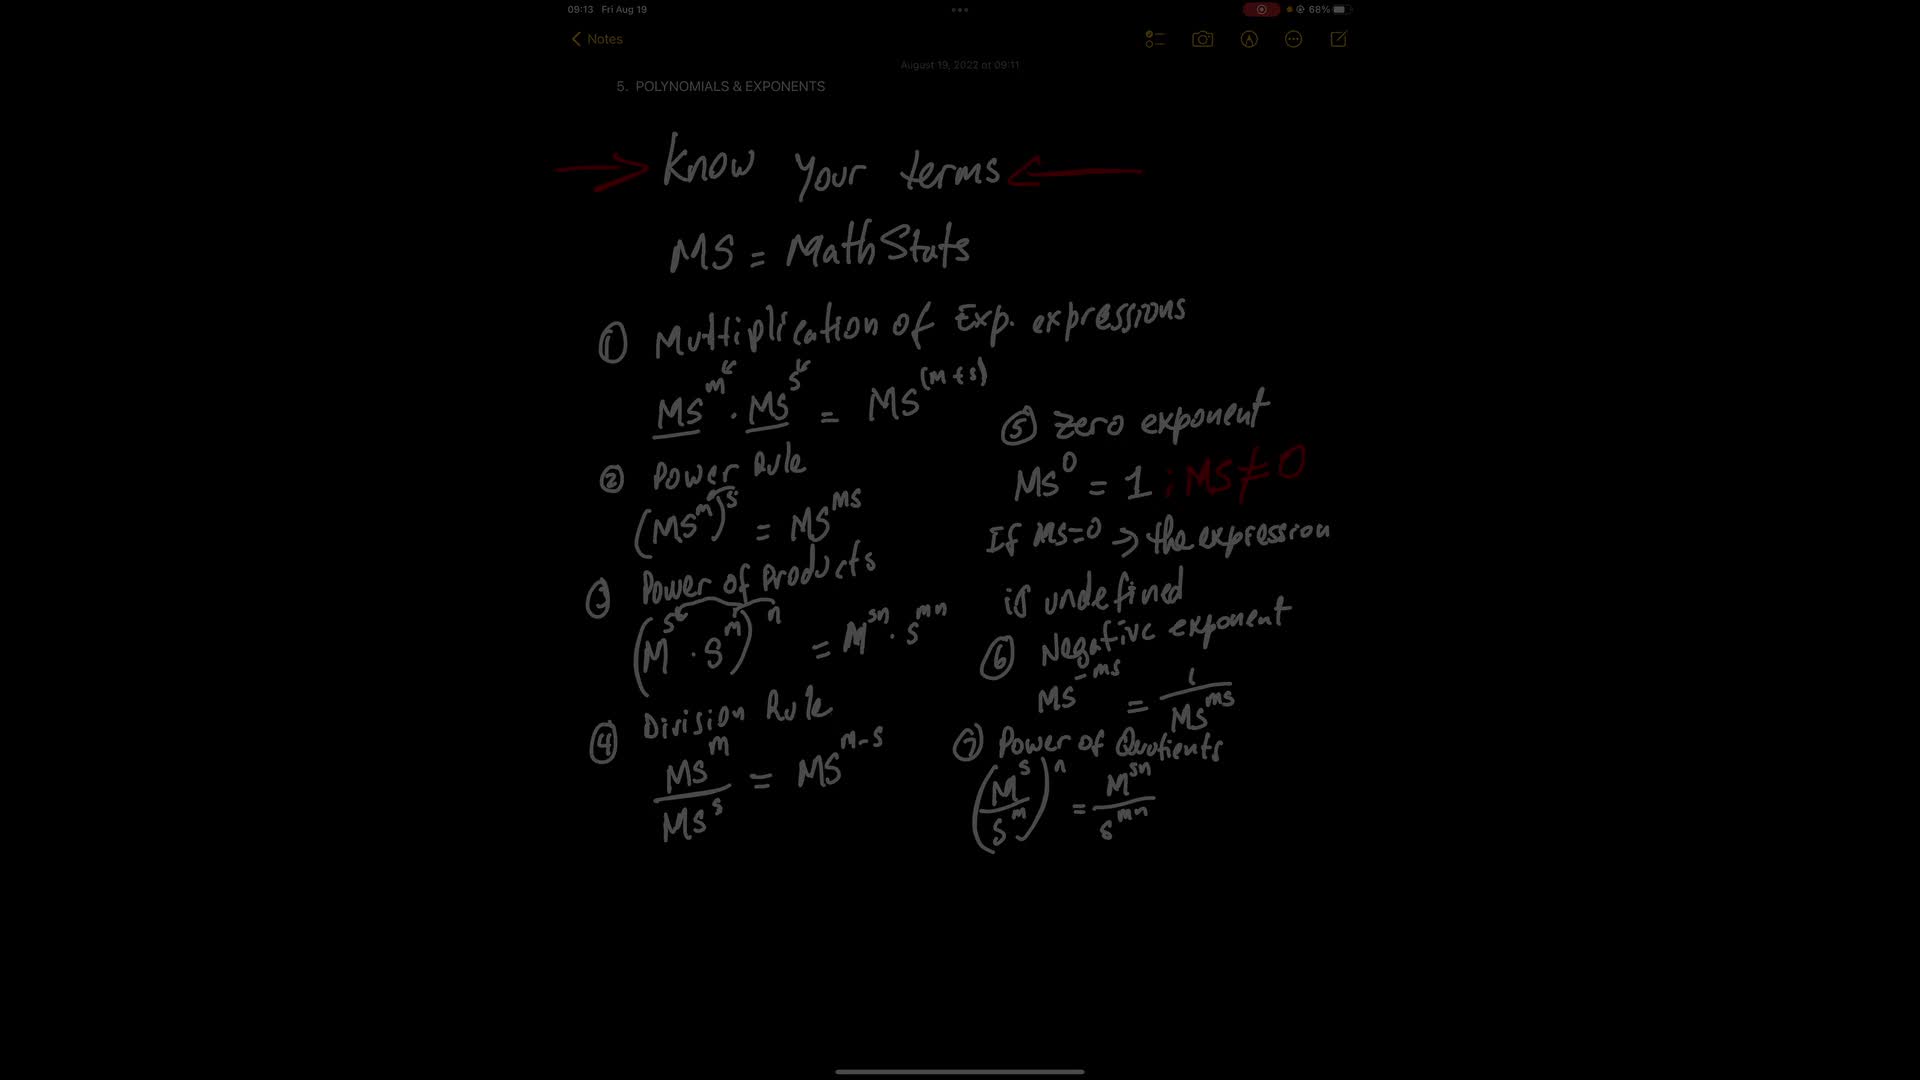 09:13 Fri Aug 19
68%
Notes
August 19, 2022 at 09:11
5. POLYNOMIALS & EXPONENTS
Know your terms
MS = MathStats
① Multiplication of Exp. expressions
MS^m · MS^s = MS^(m+s)
② Power Rule
(MS^m)^s = MS^ms
③ Power of Products
(M^s · S^m)^n = M^sn · S^mn
④ Division Rule
MS^m / MS^s = MS^m-s
⑤ Zero exponent
MS^0 = 1 ; MS ≠ 0
If MS=0 → the expression
is undefined
⑥ Negative exponent
MS^-ms = 1 / MS^ms
⑦ Power of Quotients
(M^s / S^m)^n = M^sn / S^mn